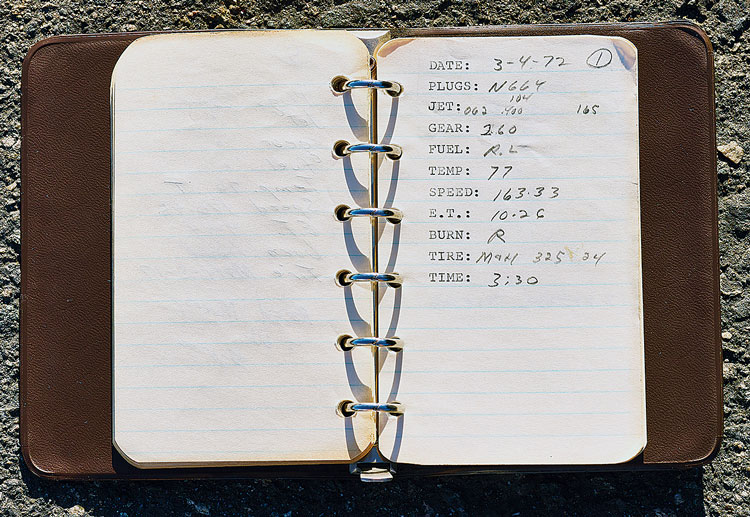 DATE: 3-4-72 ①
PLUGS: N66Y
104
JET: 062 .400 165
GEAR: 260
FUEL: R.L
TEMP: 77
SPEED: 163.33
E.T.: 10.26
BURN: R
TIRE: M&H 325 24
TIME: 3:30